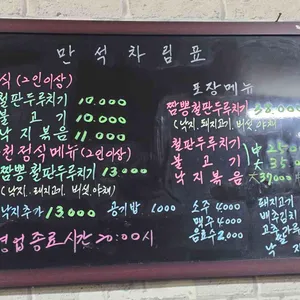 만석차림표
식 (2인이상)
철판두루치기 10.000
불고기 10.000
낙지볶음 11.000
천정식메뉴 (2인이상)
짬뽕철판두루치기 13.000
(낙지.돼지고기.버섯.야채)
낙지추가 13.000
공기밥 1.000
영업종료시간 20:00시
소주 4000
맥주 4000
음료수 2.000
포장메뉴
짬뽕철판두루치기
(낙지.돼지고기.버섯.야채)
철판두루치기
불고기
낙지볶음
돼지고기
배추김치